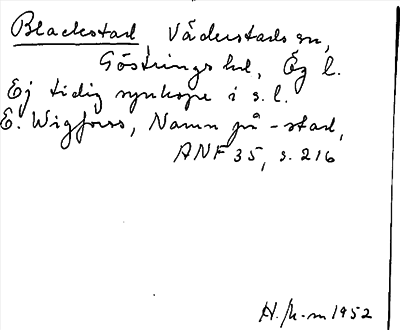 Blackstad, Väderstads sn,
Göstrings hd, Ög l.
Ej tidig synkope i s.l.
E. Wigforss, Namn på -stad,
ANF 35, s. 216
1952